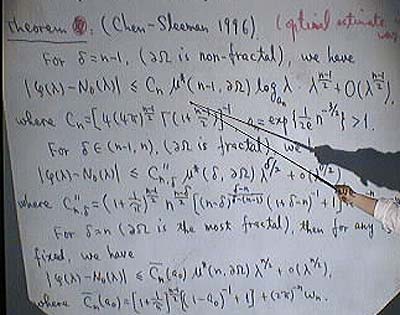 Theorem : (Chen-Sleeman 1996). (optimal estimate
For δ=n-1, (∂Ω is non-fractal), we have
|φ(λ)-N₀(λ)| ≤ Cₙ μ*(n-1,∂Ω) log_{aₙ} λ · λ^{(n-1)/2} + O(λ^{(n-1)/2}),
where Cₙ=[4(4π)^{(n-1)/2} Γ(1+(n-1)/2)]⁻¹ aₙ=exp{1/(2e) n^{-3/2}}>1.
For δ∈(n-1,n), (∂Ω is fractal), we
|φ(λ)-N₀(λ)| ≤ C''_{n,δ} μ*(δ,∂Ω) λ^{δ/2} + o(λ^{δ/2})
where C''_{n,δ} = (1+1/π)^{n-1/2} n^{(n-δ)/2} [(n-δ) (1+δ-n)⁻¹+1]
For δ=n (∂Ω is the most fractal), then for any is
fixed, we have
|φ(λ)-N₀(λ)| ≤ C̄ₙ(a₀) μ*(n,∂Ω) λ^{n/2} + o(λ^{n/2}),
where C̄ₙ(a₀)= [(1-a₀)⁻¹+1]+(2π)⁻ⁿ ωₙ.